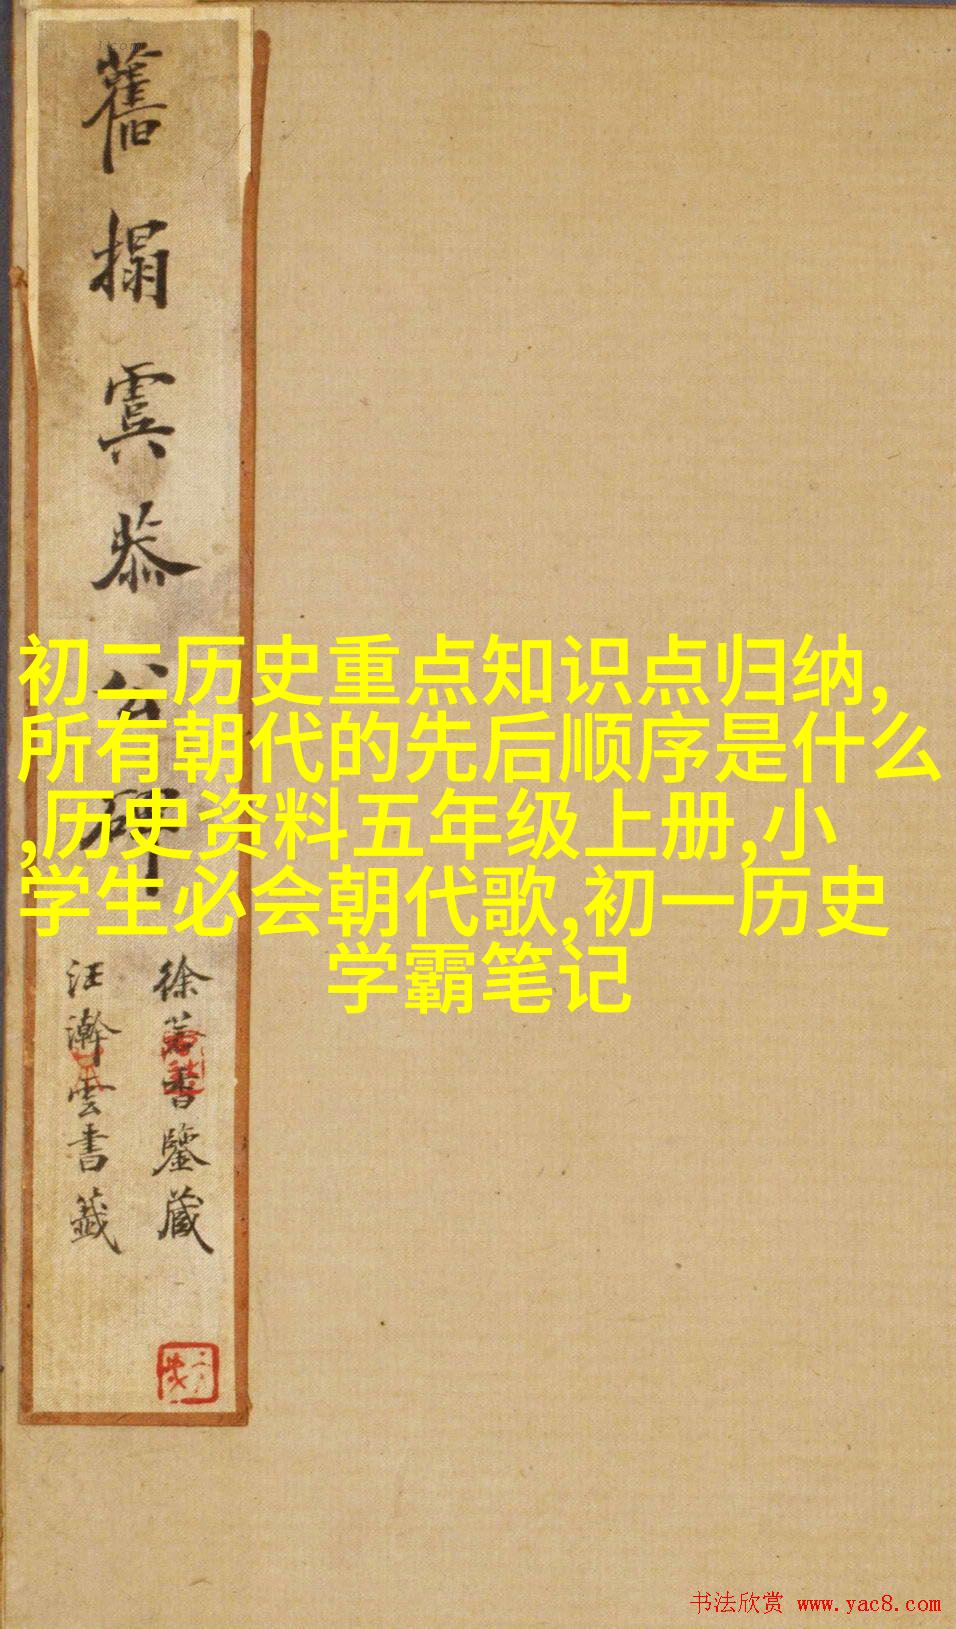 舊搨虞恭公碑
徐荟書鑒藏
汪瀚雲書籤
初二历史重点知识点归纳,
所有朝代的先后顺序是什么
,历史资料五年级上册,小
学生必会朝代歌,初一历史
学霸笔记
书法欣赏 www.yac8.com